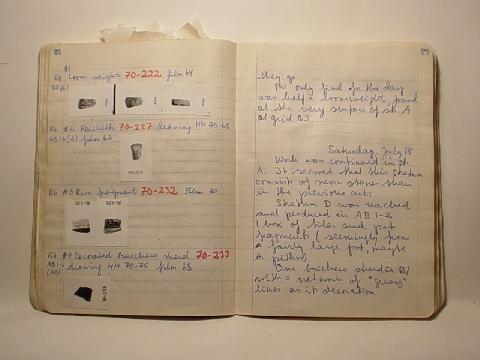 #1
Rb Loom weights 70-222 film 68
B3(6)
Rb #2 Bucchero 70-227 drawing HH 70-68
film 67
Rb #3 Rim fragment 70-232 Film 70
Rb #4 Decorated Bucchero sherd 70-233
drawing HH 70-75 film 68
they go.
The only find for the day
was half a loomweight, found
at the very surface of str. A
at grid B3.
Saturday, July 18
Work was continued in str.
A. It seemed that this stratum
consists of more stones than
in the previous cuts.
Stratum D was reached
and produced in AB 1-2
1 box of tiles and pot
fragments (seemingly from
a fairly large pot, maybe
a pithos)
One bucchero sherd
with a network of "greasy"
lines as its decoration.